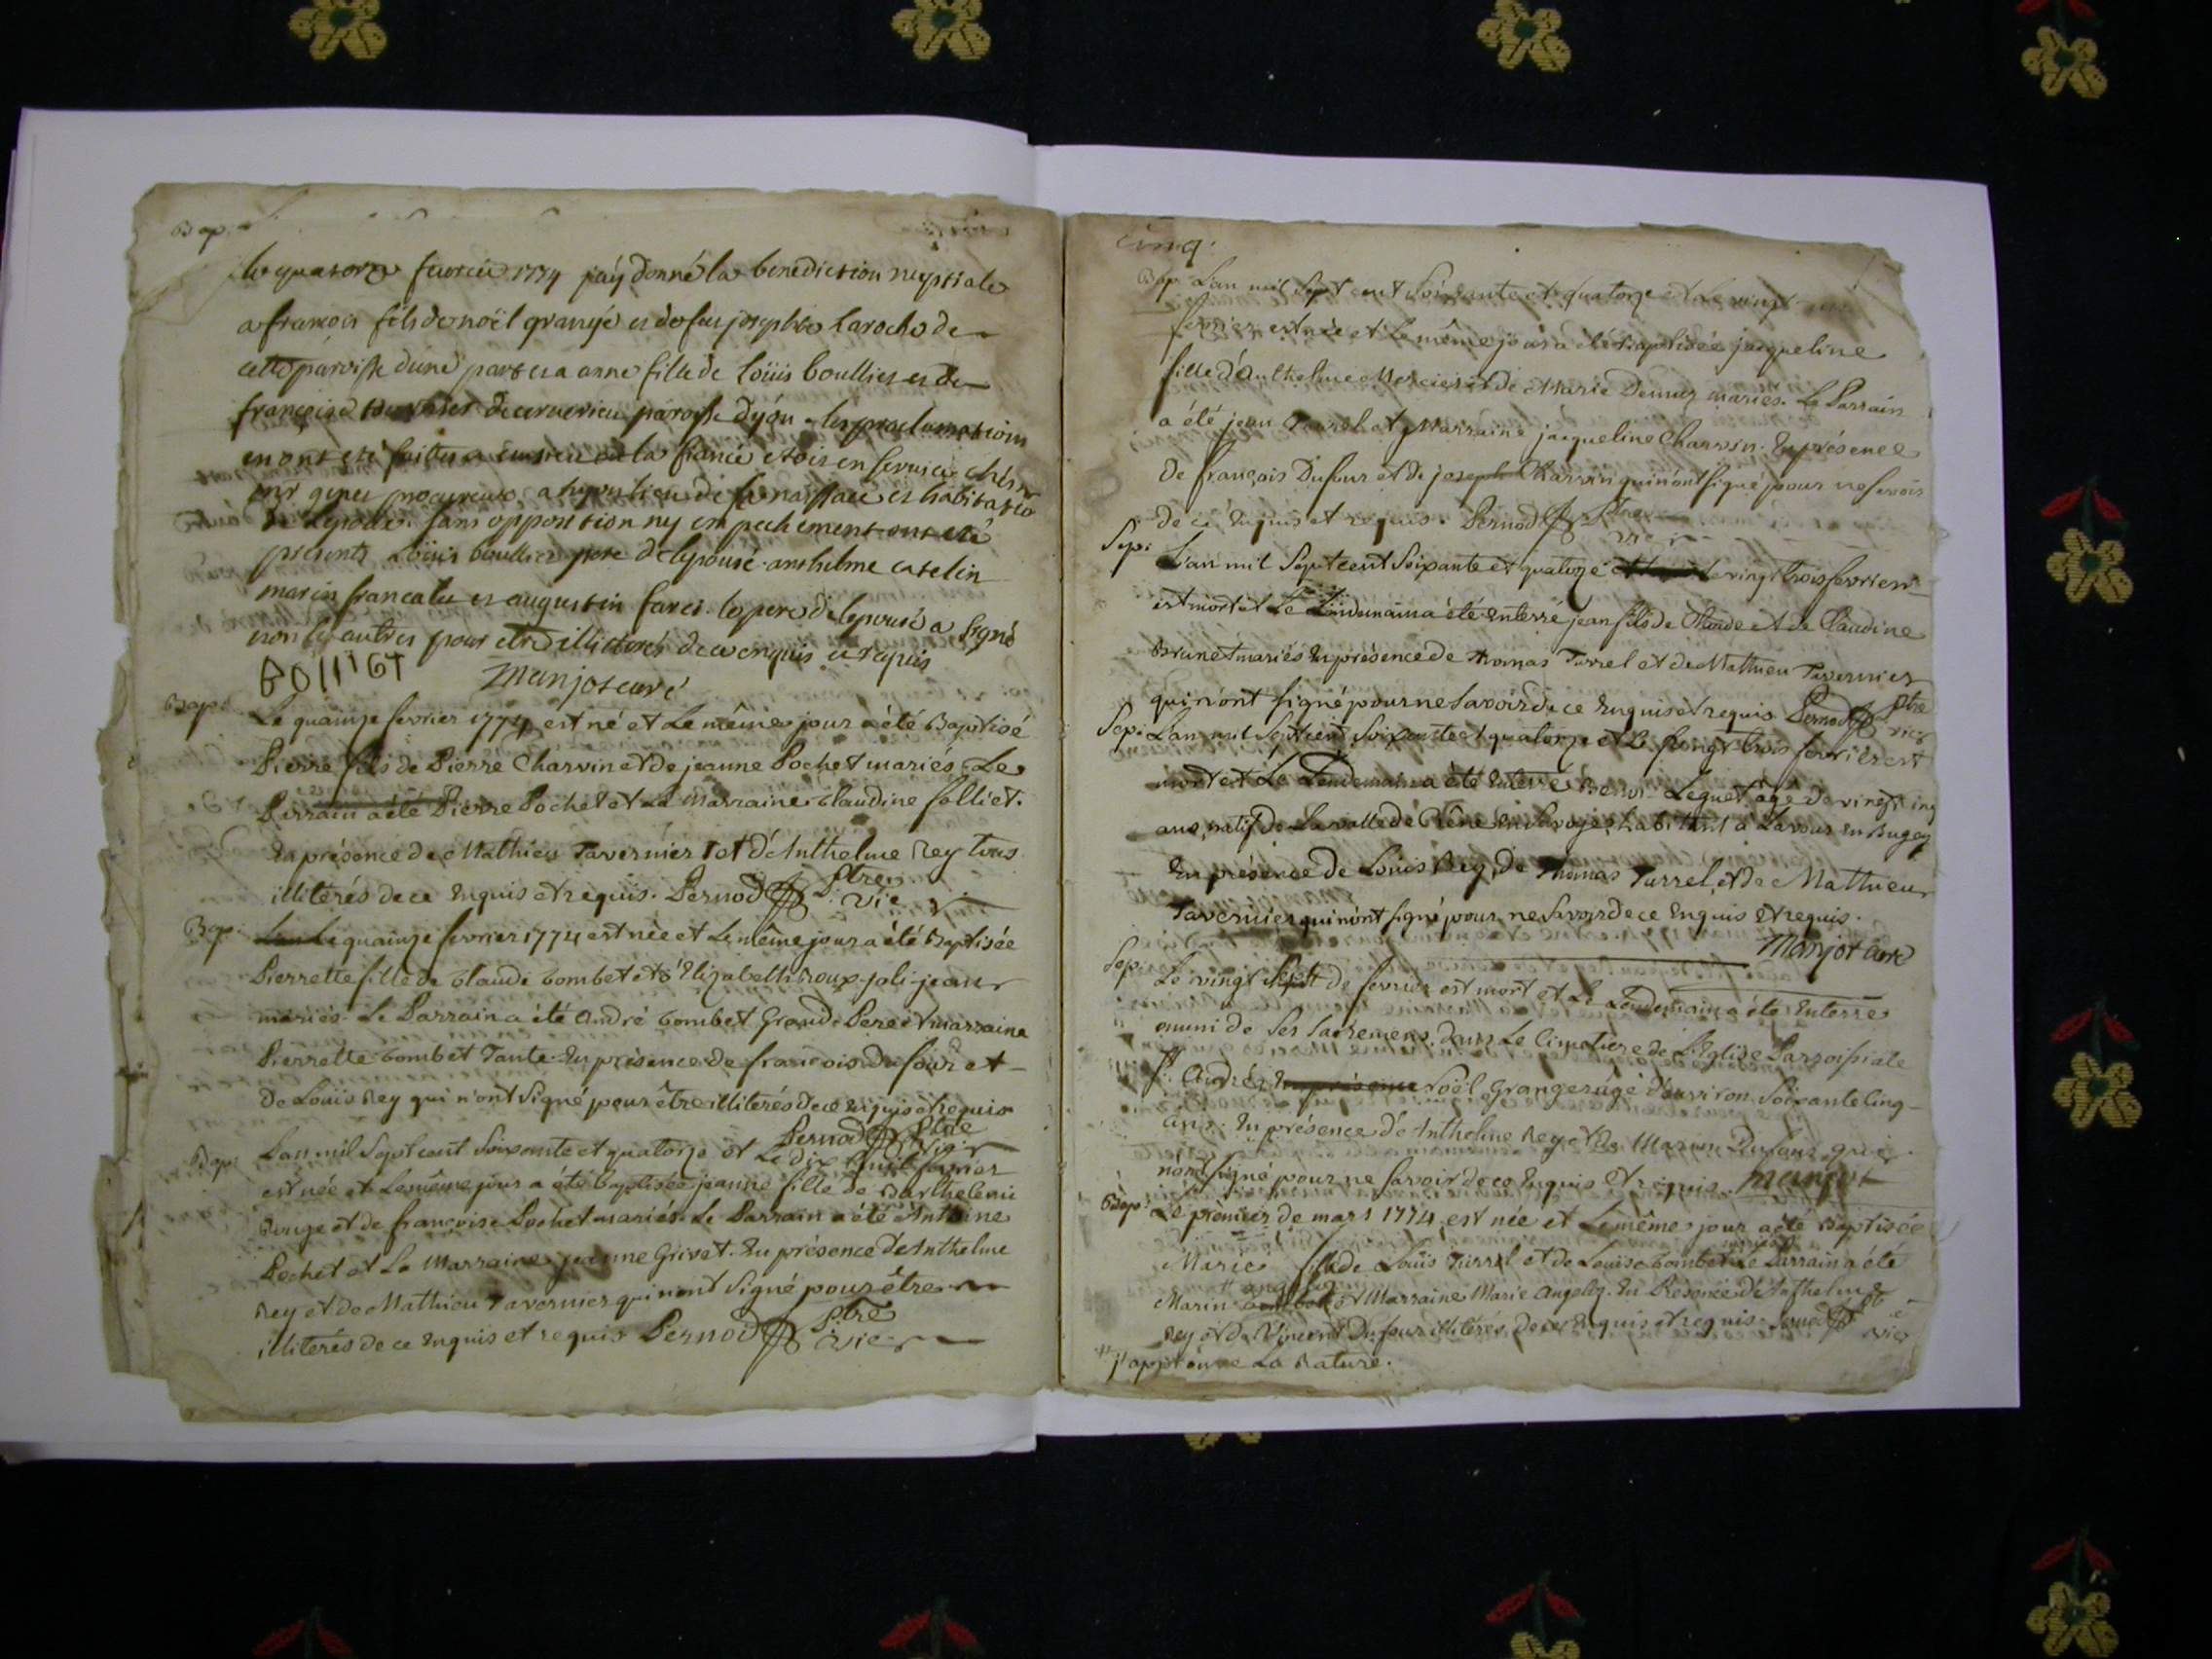 Bap.
le quatorze fevrier 1774 jaÿ donné la benediction nuptiale
a francois fils de noël grangé et de feu josephte laroche de
cette paroisse dune part et a anne fille de loüis boullier et de
françoise de paroisse dyon les proclamations
en ont eté faittes a ou la fiance etoit en service chés
mr procureur a lieu de sa naissance et habitatio
de lepouse. sans opposition ny empechement ont eté
presents Loüis boullier pere de lepouse anthelme catelin
marin francalu et augustin farci. le pere de lepouse a signé
non les autres pour etre illiterés de ce enquis et requis
BOLLIET manjot curé
Bap: Le quainze fevrier 1774 est né et Le même jour a été Baptisé
Pierre fils de Pierre Charvin et de jeanne Pochet mariés. Le
Parrain a été Pierre Pochet et La Marraine Claudine folliet.
En présence de Mathieu Tavernier et d'Anthelme Rey tous
illiterés de ce Enquis et requis. Pernod Ptre vic
Bap: Le quainze fevrier 1774 est née et Le même jour a été Baptisée
Pierrette fille de Claude Combet et d'Elizabeth roux-joli-jean
mariés. Le Parrain a été André Combet Grand Pere et marraine
Pierrette Combet Tante. En présence de francois Dufour et
De Louis Rey qui n'ont Signé pour être illiterés de ce Enquis et requis
Pernod Ptre vic
Bap: Lan mil Sept cent Soixante et quatorze et Le dix huit fevrier
est née et Le même jour a été baptisée jeanne fille de Barthelemi
Rouge et de françoise Pochet mariés. Le Parrain a été Anthoine
Pochet et La Marraine jeanne Grivet. En présence d'Anthelme
Rey et de Mathieu Tavernier qui n'ont Signé pour être
illiterés de ce Enquis et requis Pernod Ptre vic
cinq.
Bap: Lan mil Sept cent Soixante et quatorze et Le vingt
fevrier est née et Le même jour a été Baptisée jacqueline
fille d'Anthelme Mercier et de Marie Demur mariés. Le Parrain
a été jean et Marraine jacqueline Charvin. En présence
de françois Dufour et de joseph Charvin qui n'ont signé pour ne savoir
de ce Enquis et requis. Pernod Ptre vic
Sep: L'an mil Sept cent Soixante et quatorze le vingt trois fevrier
est mort et Le Lendemain a été Enterré jean fils de Claude et de Claudine
Brunet mariés En présence de Thomas Turrel et de Mathieu Tavernier
qui n'ont Signé pour ne Savoir de ce Enquis et requis Pernod Ptre vic
Sep: Lan mil Sept cent Soixante et quatorze et Le vingt trois fevrier est
mort et Le Lendemain a été Enterré Leguet agé de vingt cinq
ans, natif de La vallée de en Savoye, habitant à Lavour En Bugey
En présence de Loüis Rey, de Thomas Turrel, et de Mathieu
Tavernier qui n'ont signé pour ne Savoir de ce Enquis et requis.
Manjot curé
Sep: Le vingt Sept de fevrier est mort et Le Lendemain a été Enterré
muni de Ses Sacremens, dans Le Cimetiere de L'Eglise Parroissiale
St. André, En présence Noël Granger agé d'environ Soixante Cinq
ans. En présence d'Anthelme Rey et de Marin Dufour qui
n'ont Signé pour ne Savoir de ce Enquis et requis. Manjot
Bap: Le premier de mars 1774 est née et Le même jour a été Baptisée
Marie fille de Louis Turrel et de Louise Combet mariés Le Parrain a été
Marin Combet angeloz et Marraine Marie Angeloz. En Présence d'Anthelme
Rey et de Vincent Dufour illiterés de ce Enquis et requis. Pernod Ptre vic
j'approuve La Rature.